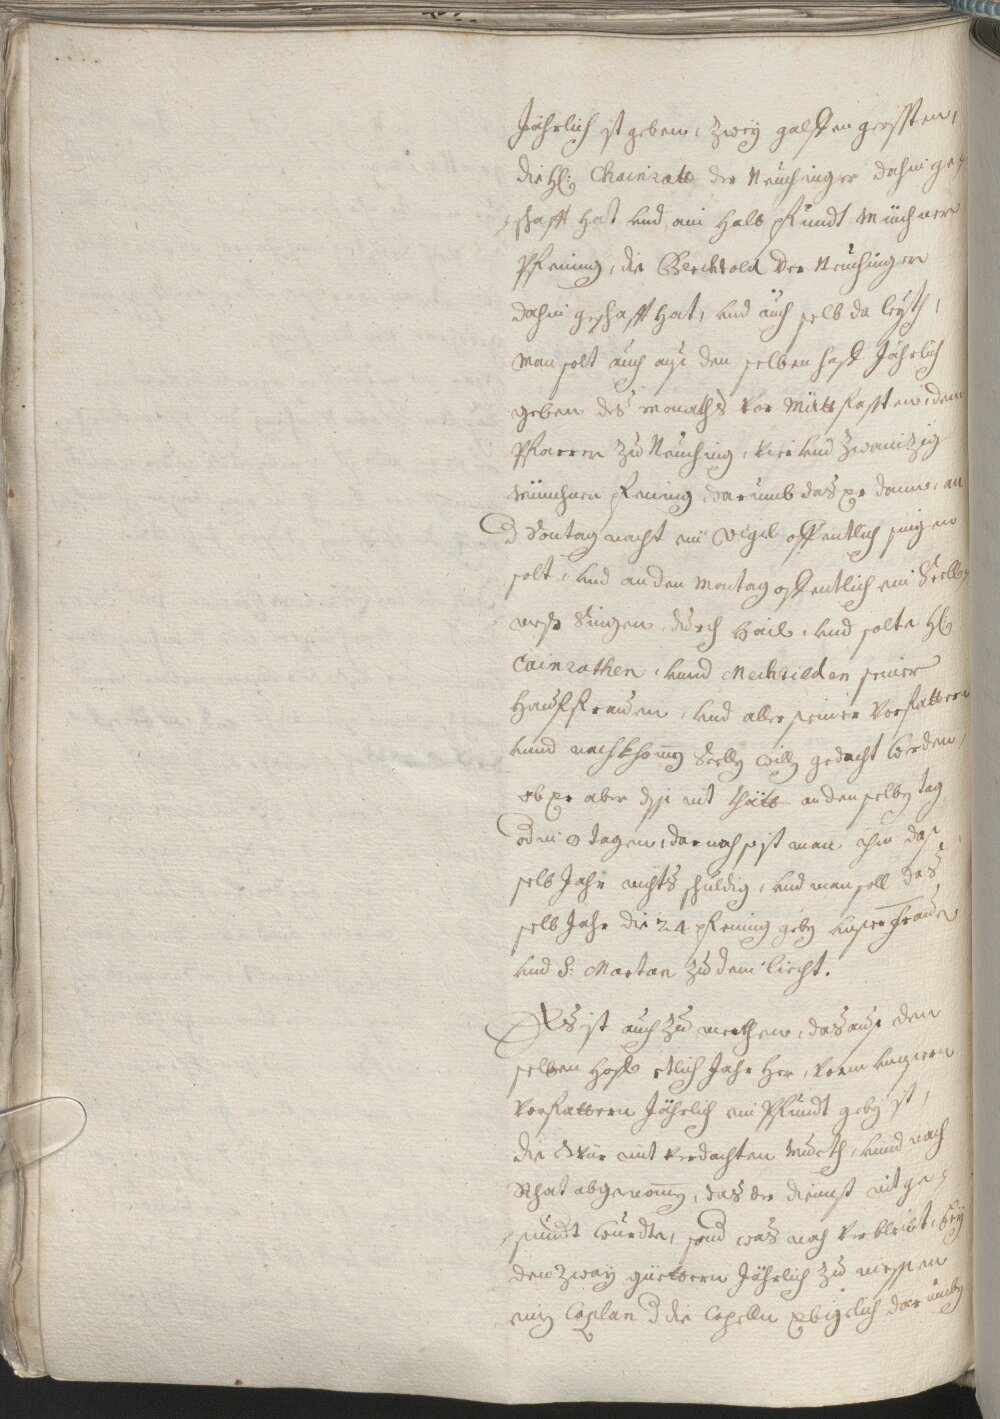 Jährlich ist geben, Zweÿ galsten gerssten,
die Hl: Chainratt der Neuchinger dahin ge¬
schafft hat und ain halb Pfundt Münchner
Pfening, die Berchtold der Neuchinger
dahin geschafft hat, und auch selb da leÿth,
Man solt auch auß den selben hoff Jährlich
geben des monaths vor Mittfassten, dem
Pfarrer zu Neuching, vier und Zwainzig
Münchner Pfening, darumb das er dann, an
d Sontag nacht ein Vigil offentlich singen
solt, und an den Montag offentlich ein Seell¬
meß Singen, durch hail, und solte Hl:
Cainrathen, unnd Mechtilden seiner
Haußfrauen, und aller seiner Vorfattern
unnd nachkhomg Seellg willg gedacht werden,
ob er aber dß nit thätt an den selbg tag
od in 8 tagen, darnach so ist man ihm daß
selb Jahr nichts schuldig, und man soll das
selb Jahr die 24 pfening gebg unser Frauen
und S: Martan zu dem liecht.
Es ist auch zu merkhen, das auß den
selben Hoff etlich Jahr her, von unsern
Vorfattern Jährlich ein Pfundt gebg ist,
die wür mit verdachten mueth, unnd nach
Rhat abgenomg, das der dienst nit ge¬
sündt wurdte, sond was noch verbleibt, beÿ
den Zwaÿ güettern Jährlich zu niessen
eing Caplan d die Capelln ewigelich darumbg